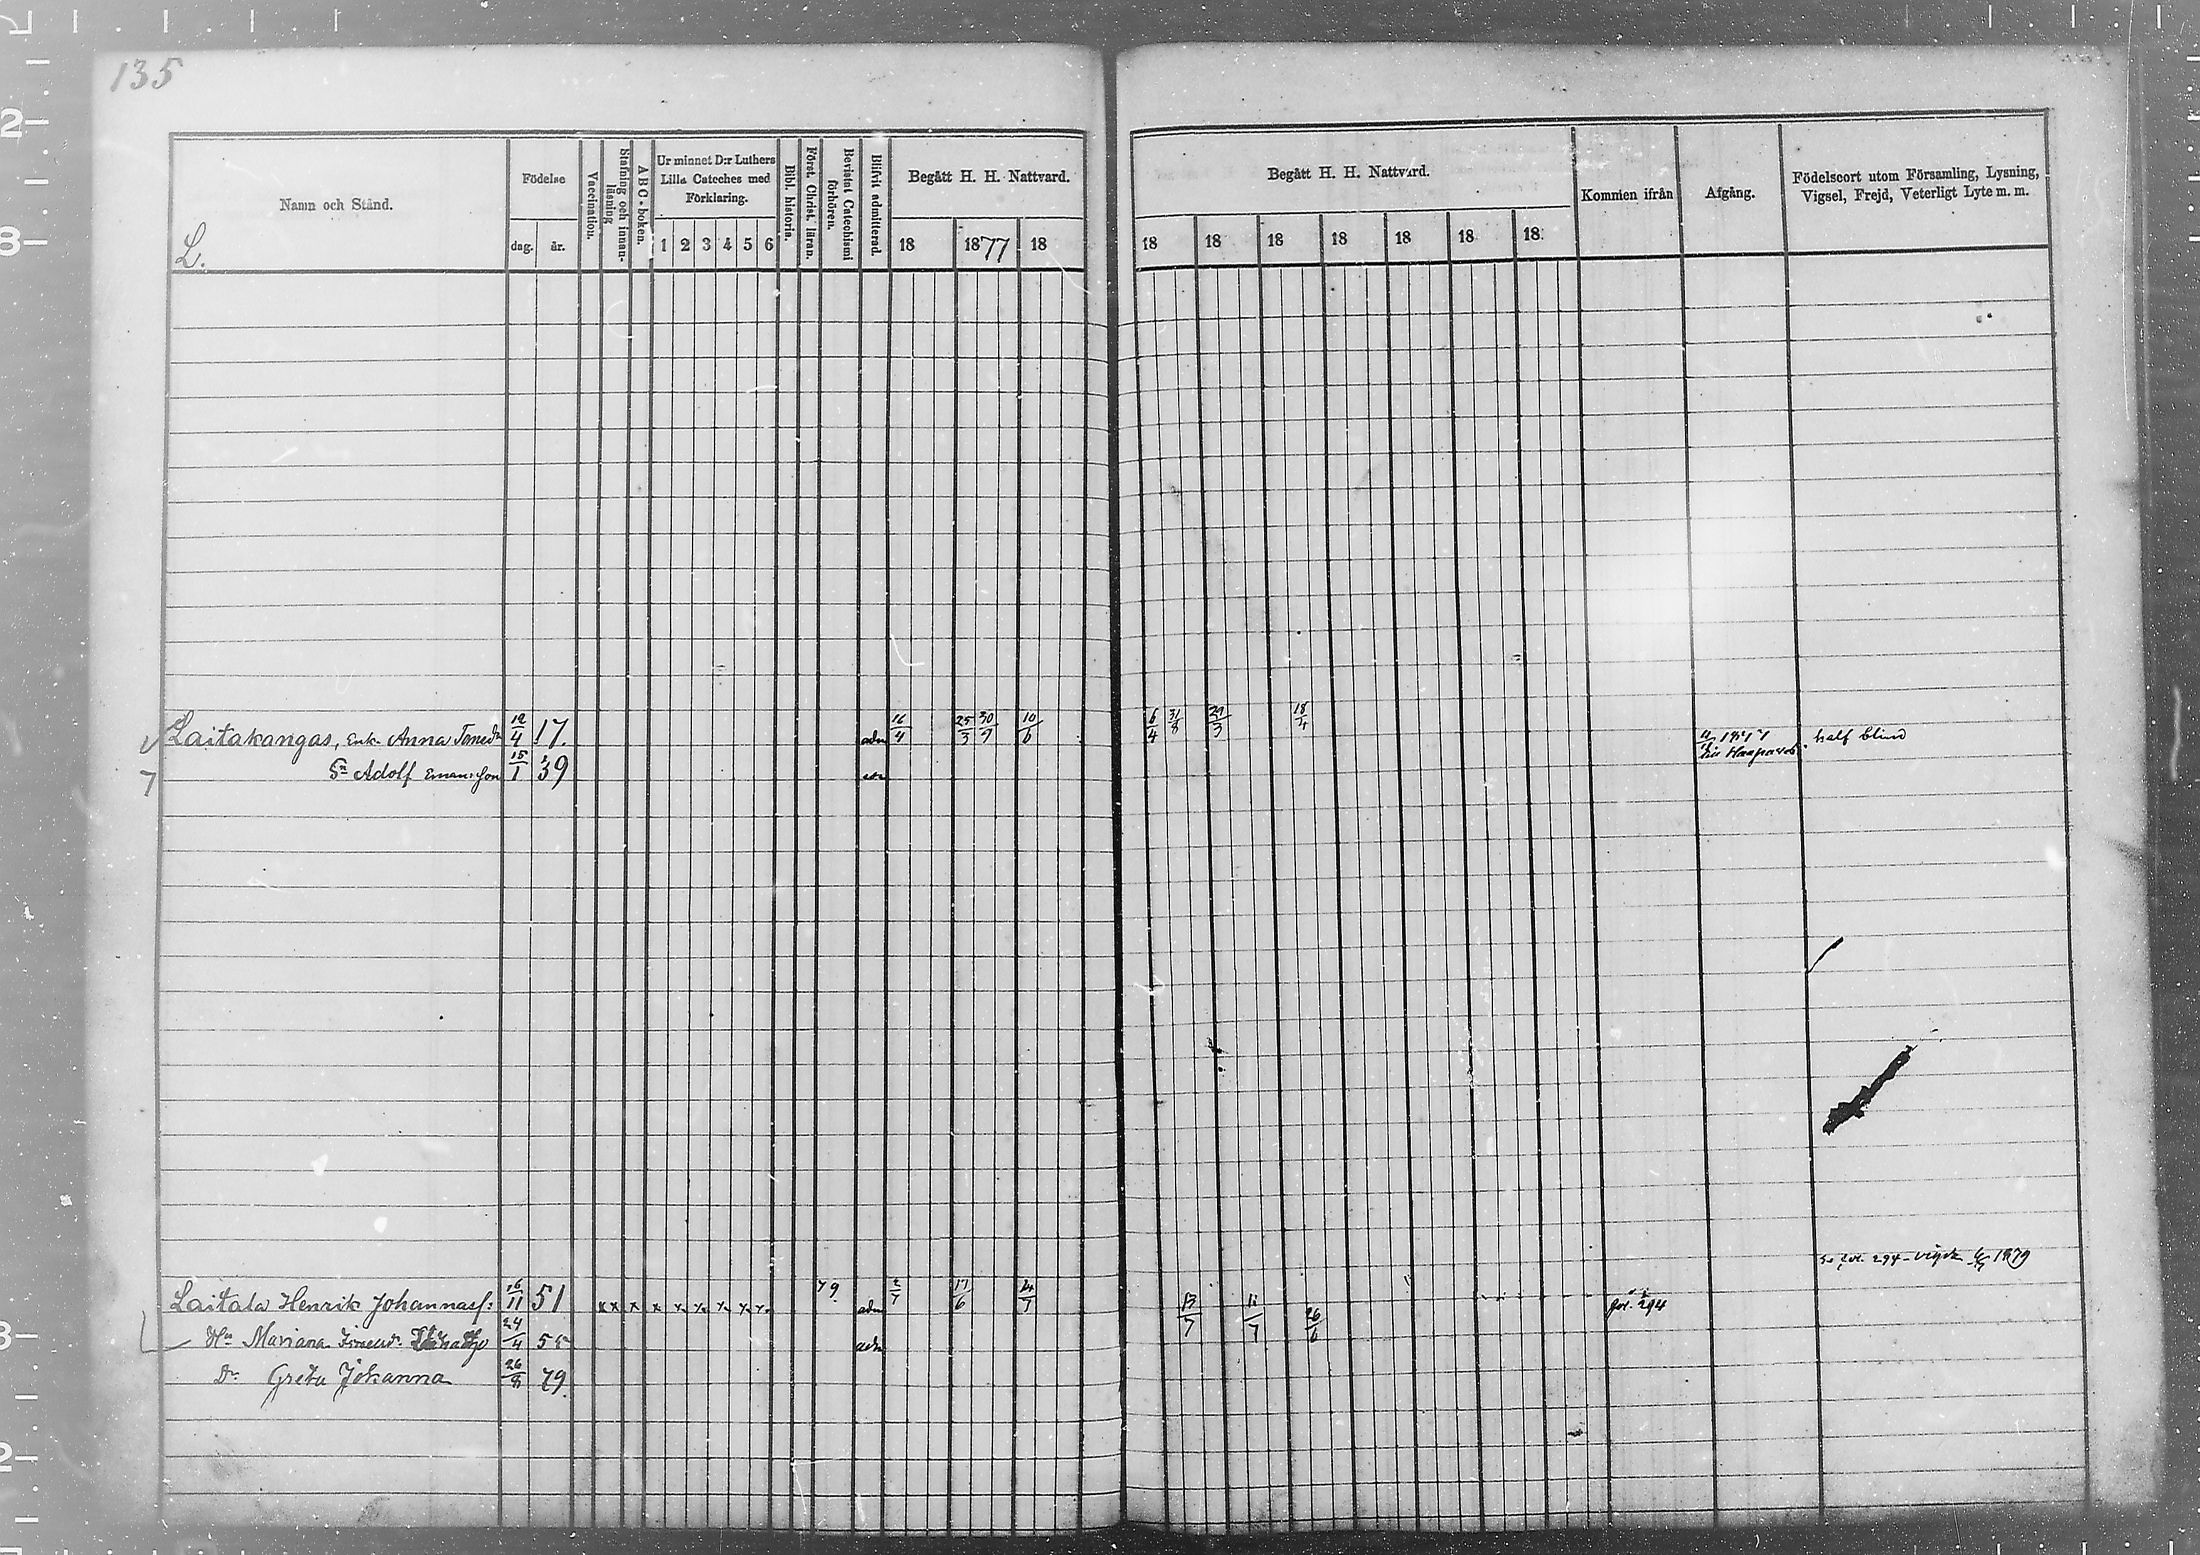 135
Namn och Stånd.
L.
Födelse
dag. år.
Vaccination.
Stafning och innan-läsning
A B C - boken.
Ur minnet D:r Luthers
Lilla Cateches med
Förklaring.
1 2 3 4 5 6
Bibl. historia.
Först. Christ. läran.
Bevistat Catechismi förhören.
Blifvit admitterad.
Begått H. H. Nattvard.
18 1877 18
Begått H. H. Nattvard.
18 18 18 18 18 18 18
Kommen ifrån
Afgång.
Födelseort utom Församling, Lysning,
Vigsel, Frejd, Veterligt Lyte m. m.
Laitakangas, Enk. Anna 12/4 17. adm 16/4 25/3 30/9 10/6 6/4 31/8 29/3 18/4 half blind
Sn Adolf 15/1 39
fol. 294 - vigde 1879
Laitala Henrik Johannasf: 16/11 51 x x x x x x x x x 79 adm 2/7 17/6 14/7 13/7 11/7 26/6 fol. 294
Hu Mariana 24/4 55 adm
Dr Greta Johanna 26/8 79.